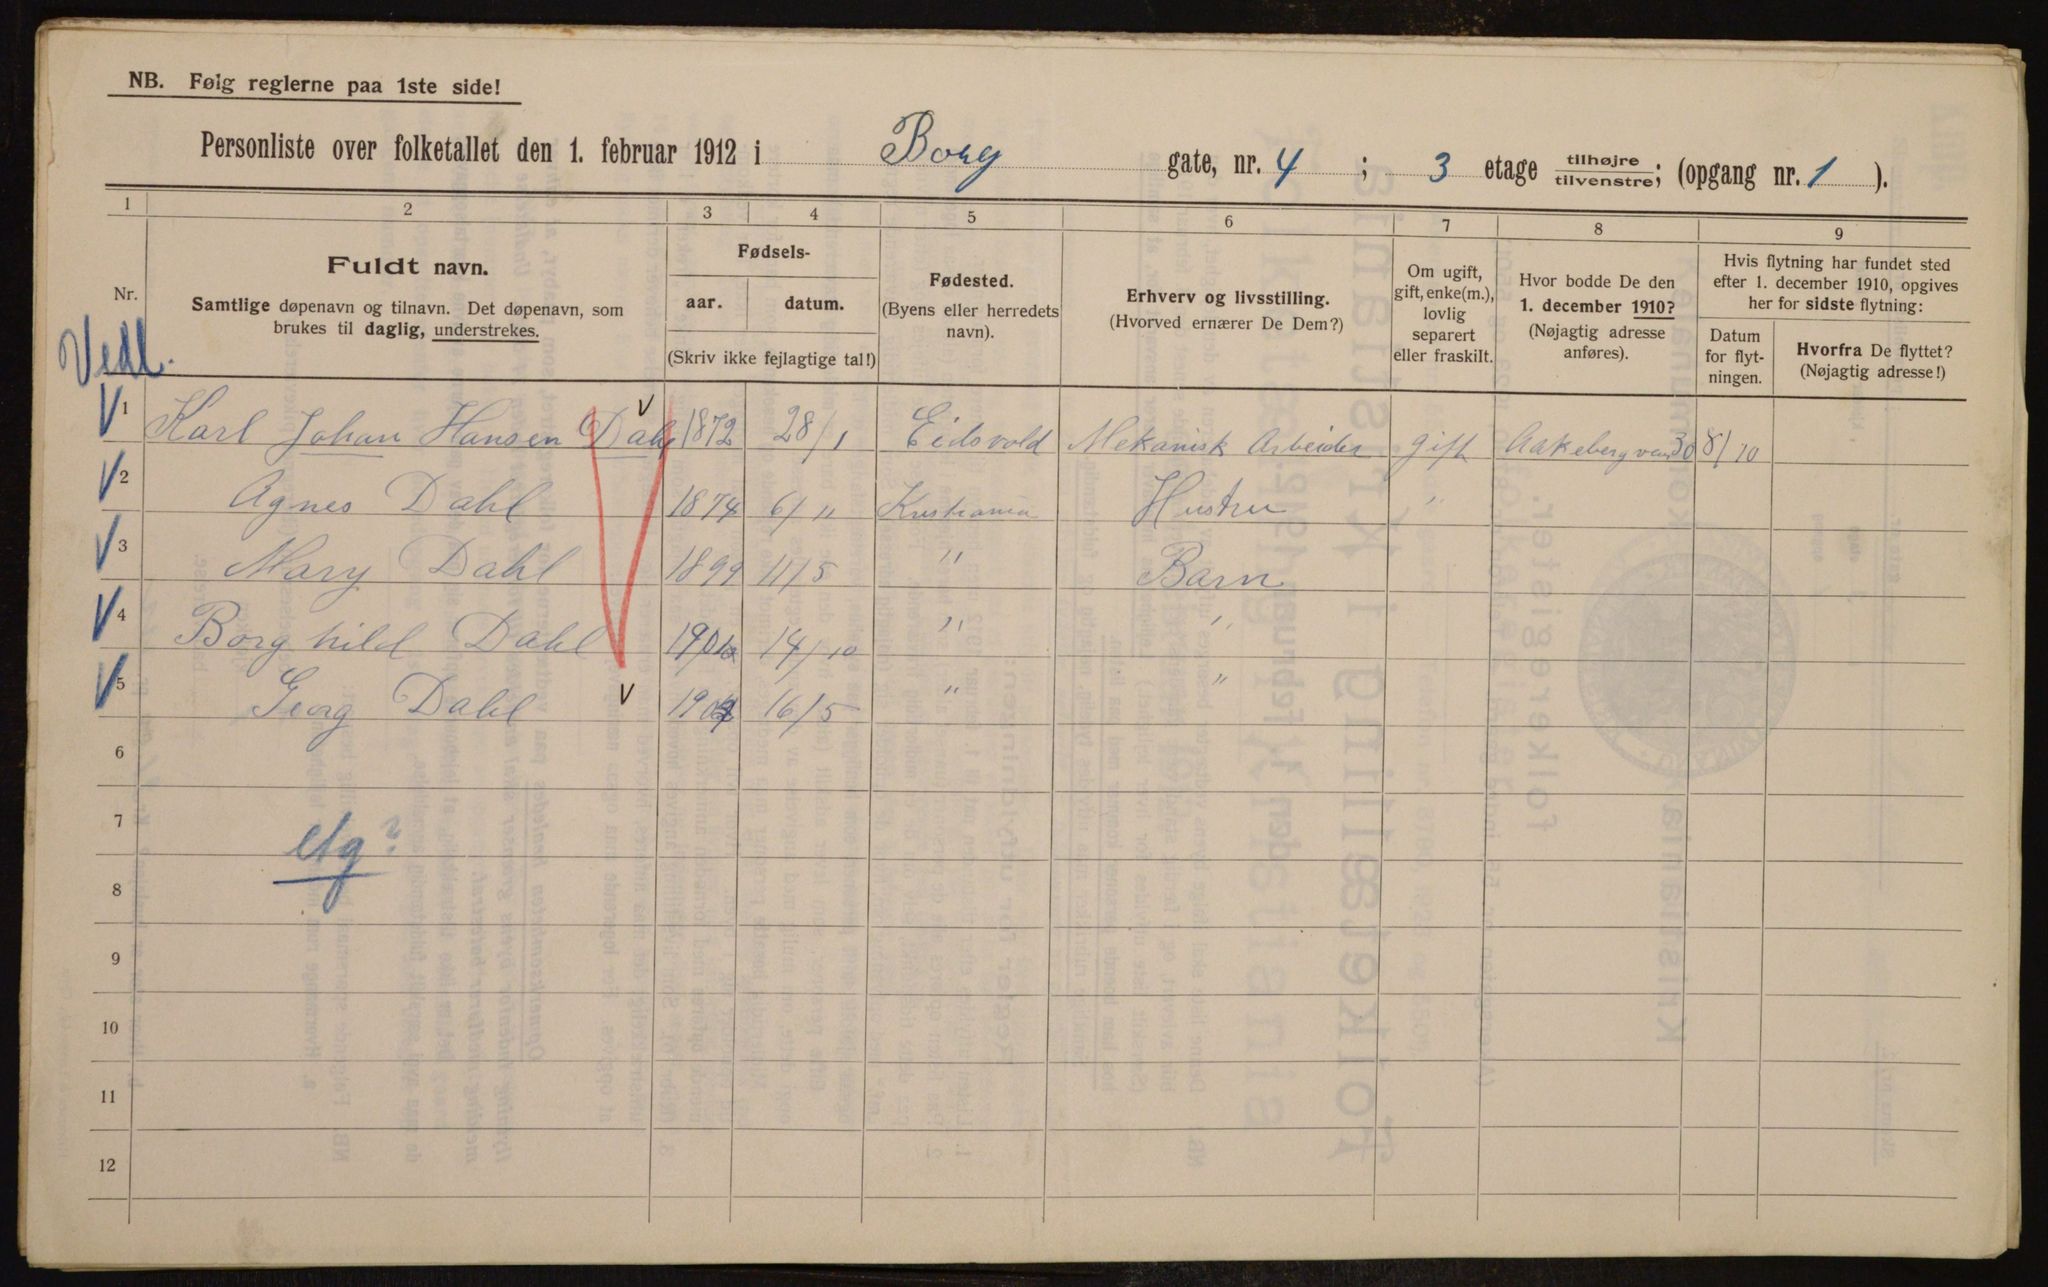 NB. Følg reglerne paa 1ste side!
Personliste over folketallet den 1. februar 1912 i Borg gate, nr. 4 ; 3 etage tilhøjre tilvenstre; (opgang nr. 1 ).
1 2 3 4 5 6 7 8 9
Nr.
Fuldt navn.
Samtlige døpenavn og tilnavn. Det døpenavn, som
brukes til daglig, understrekes.
Fødsels-
aar. datum.
(Skriv ikke fejlagtige tal!)
Fødested.
(Byens eller herredets
navn).
Erhverv og livsstilling.
(Hvorved ernærer De Dem?)
Om ugift,
gift, enke(m.),
lovlig
separert
eller fraskilt.
Hvor bodde De den
1. december 1910?
(Nøjagtig adresse
anføres).
Hvis flytning har fundet sted
efter 1. december 1910, opgives
her for sidste flytning:
Datum
for flyt-
ningen.
Hvorfra De flyttet?
(Nøjagtig adresse!)
Vedl.
1 Karl Johan Hansen Dahl 1872 28/1 Eidsvold Mekanisk Arbeider gift Aakebergveien 30 8/10
2 Agnes Dahl 1874 6/11 Kristiania Hustru "
3 Mary Dahl 1899 11/5 " Barn
4 Borghild Dahl 14/10 " "
5 Georg Dahl 16/5 " "
6
7
8
9
10
11
12